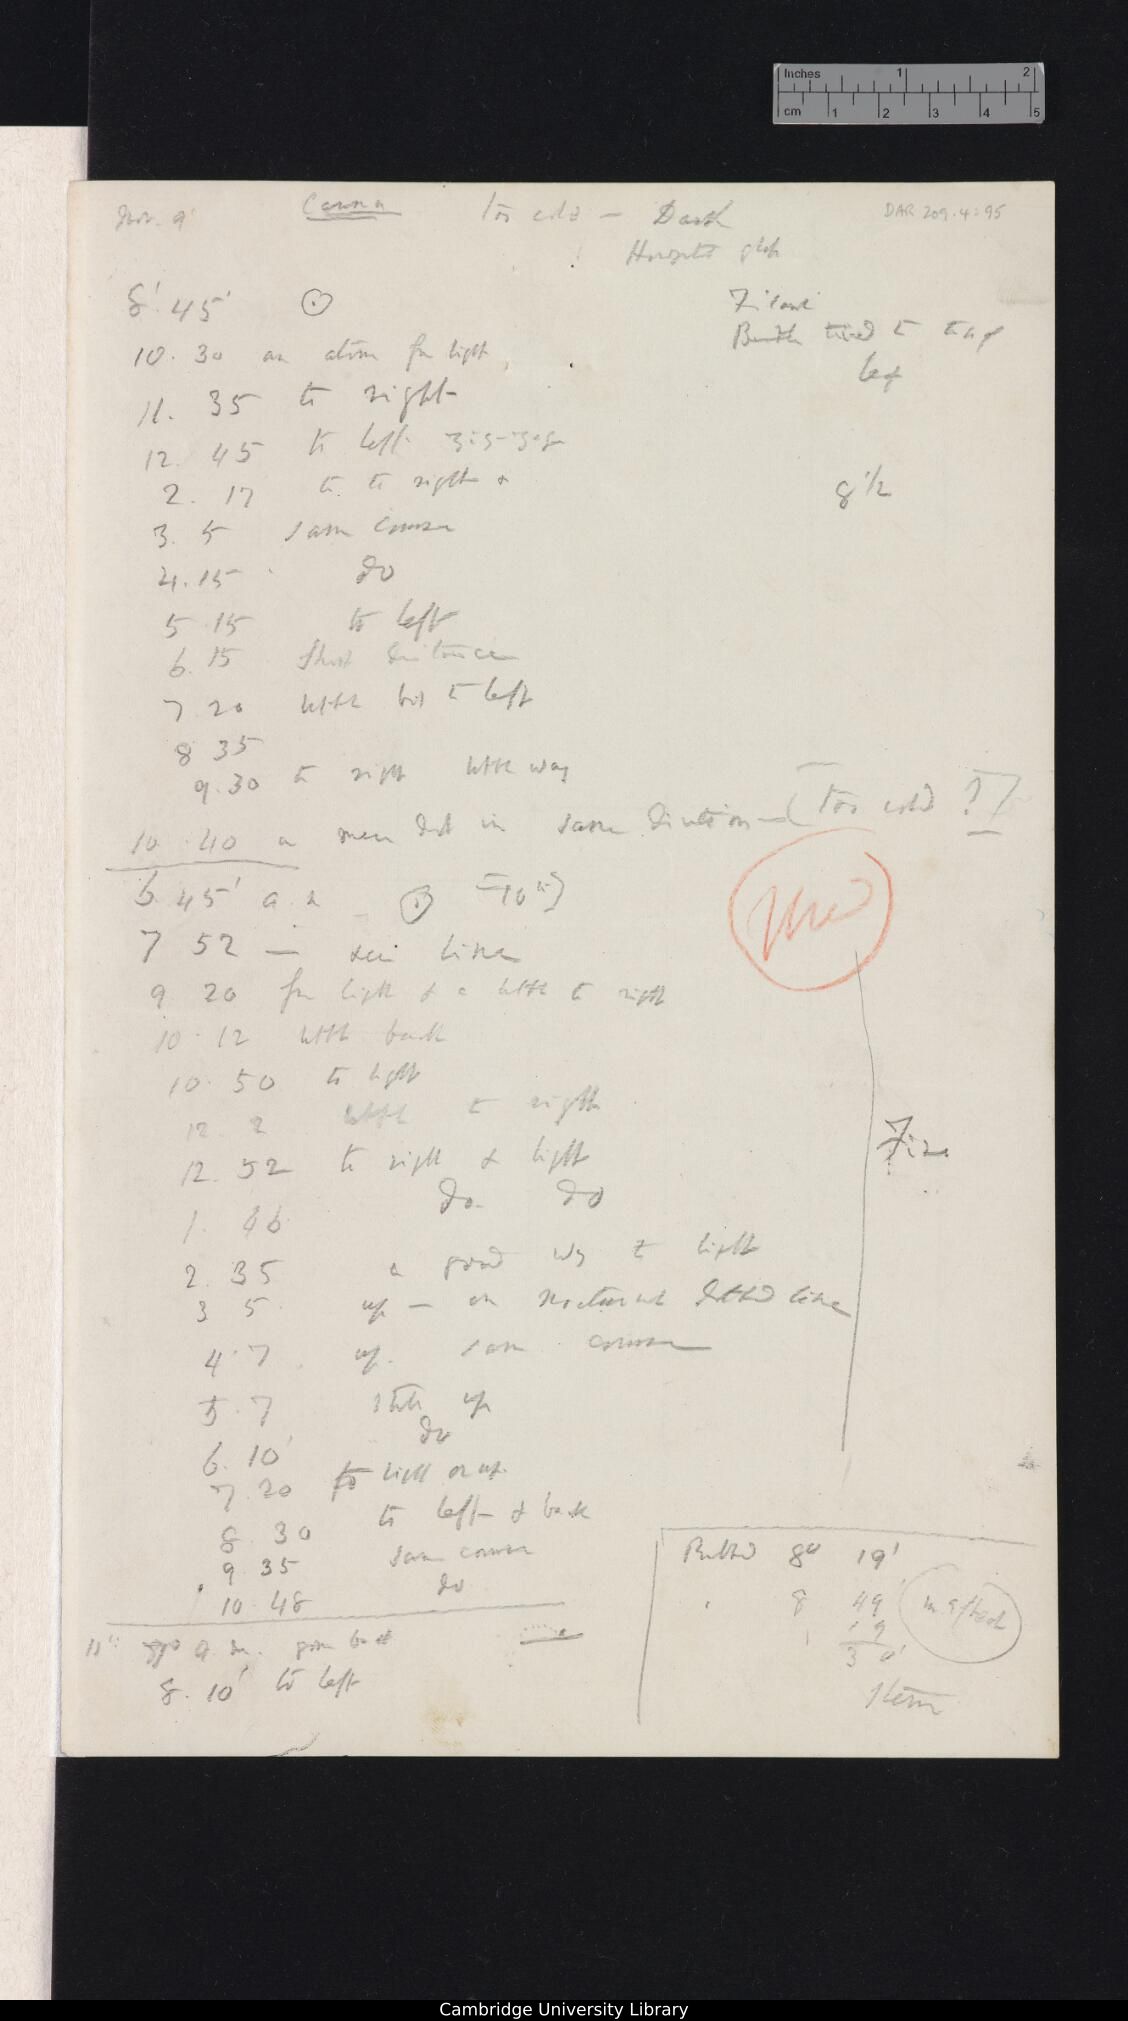 Inches 1 2
cm 1 2 3 4 5
Nov. 9 Canna too cold — Dark DAR 209.4:95
Horizontal glass
8' 45'
Filament
10. 30 an atom from light
tied to tip of
leaf
11. 35 to right
12. 45 to left zig-zag
2. 17 to right &
8 1/2
3. 5 same course
4. 15 do
5 15 to left
6. 15 short distance
7 20 little bit to left
8 35
9. 30 to right little way
10 40 a mere dot in same direction — (Too cold ?)
6 45' a.m 10th
Used
7 52 — line
9 20 from light & a little to right
10. 12 little back
10. 50 to light
12 2 little to right
12. 52 to right & light
1. 46 do. do
2. 35 a good way to light
3 5 up — on nocturnal dotted line
4. 7 up. same course
5. 7 little up
6. 10' do
7. 20 to light or up.
8. 30 to left & back
9 35 same course
10. 48 do
Rubbed 8° 19'
8 49
19
30'
Stem
11th a.m. gone back
8. 10' to left
Cambridge University Library